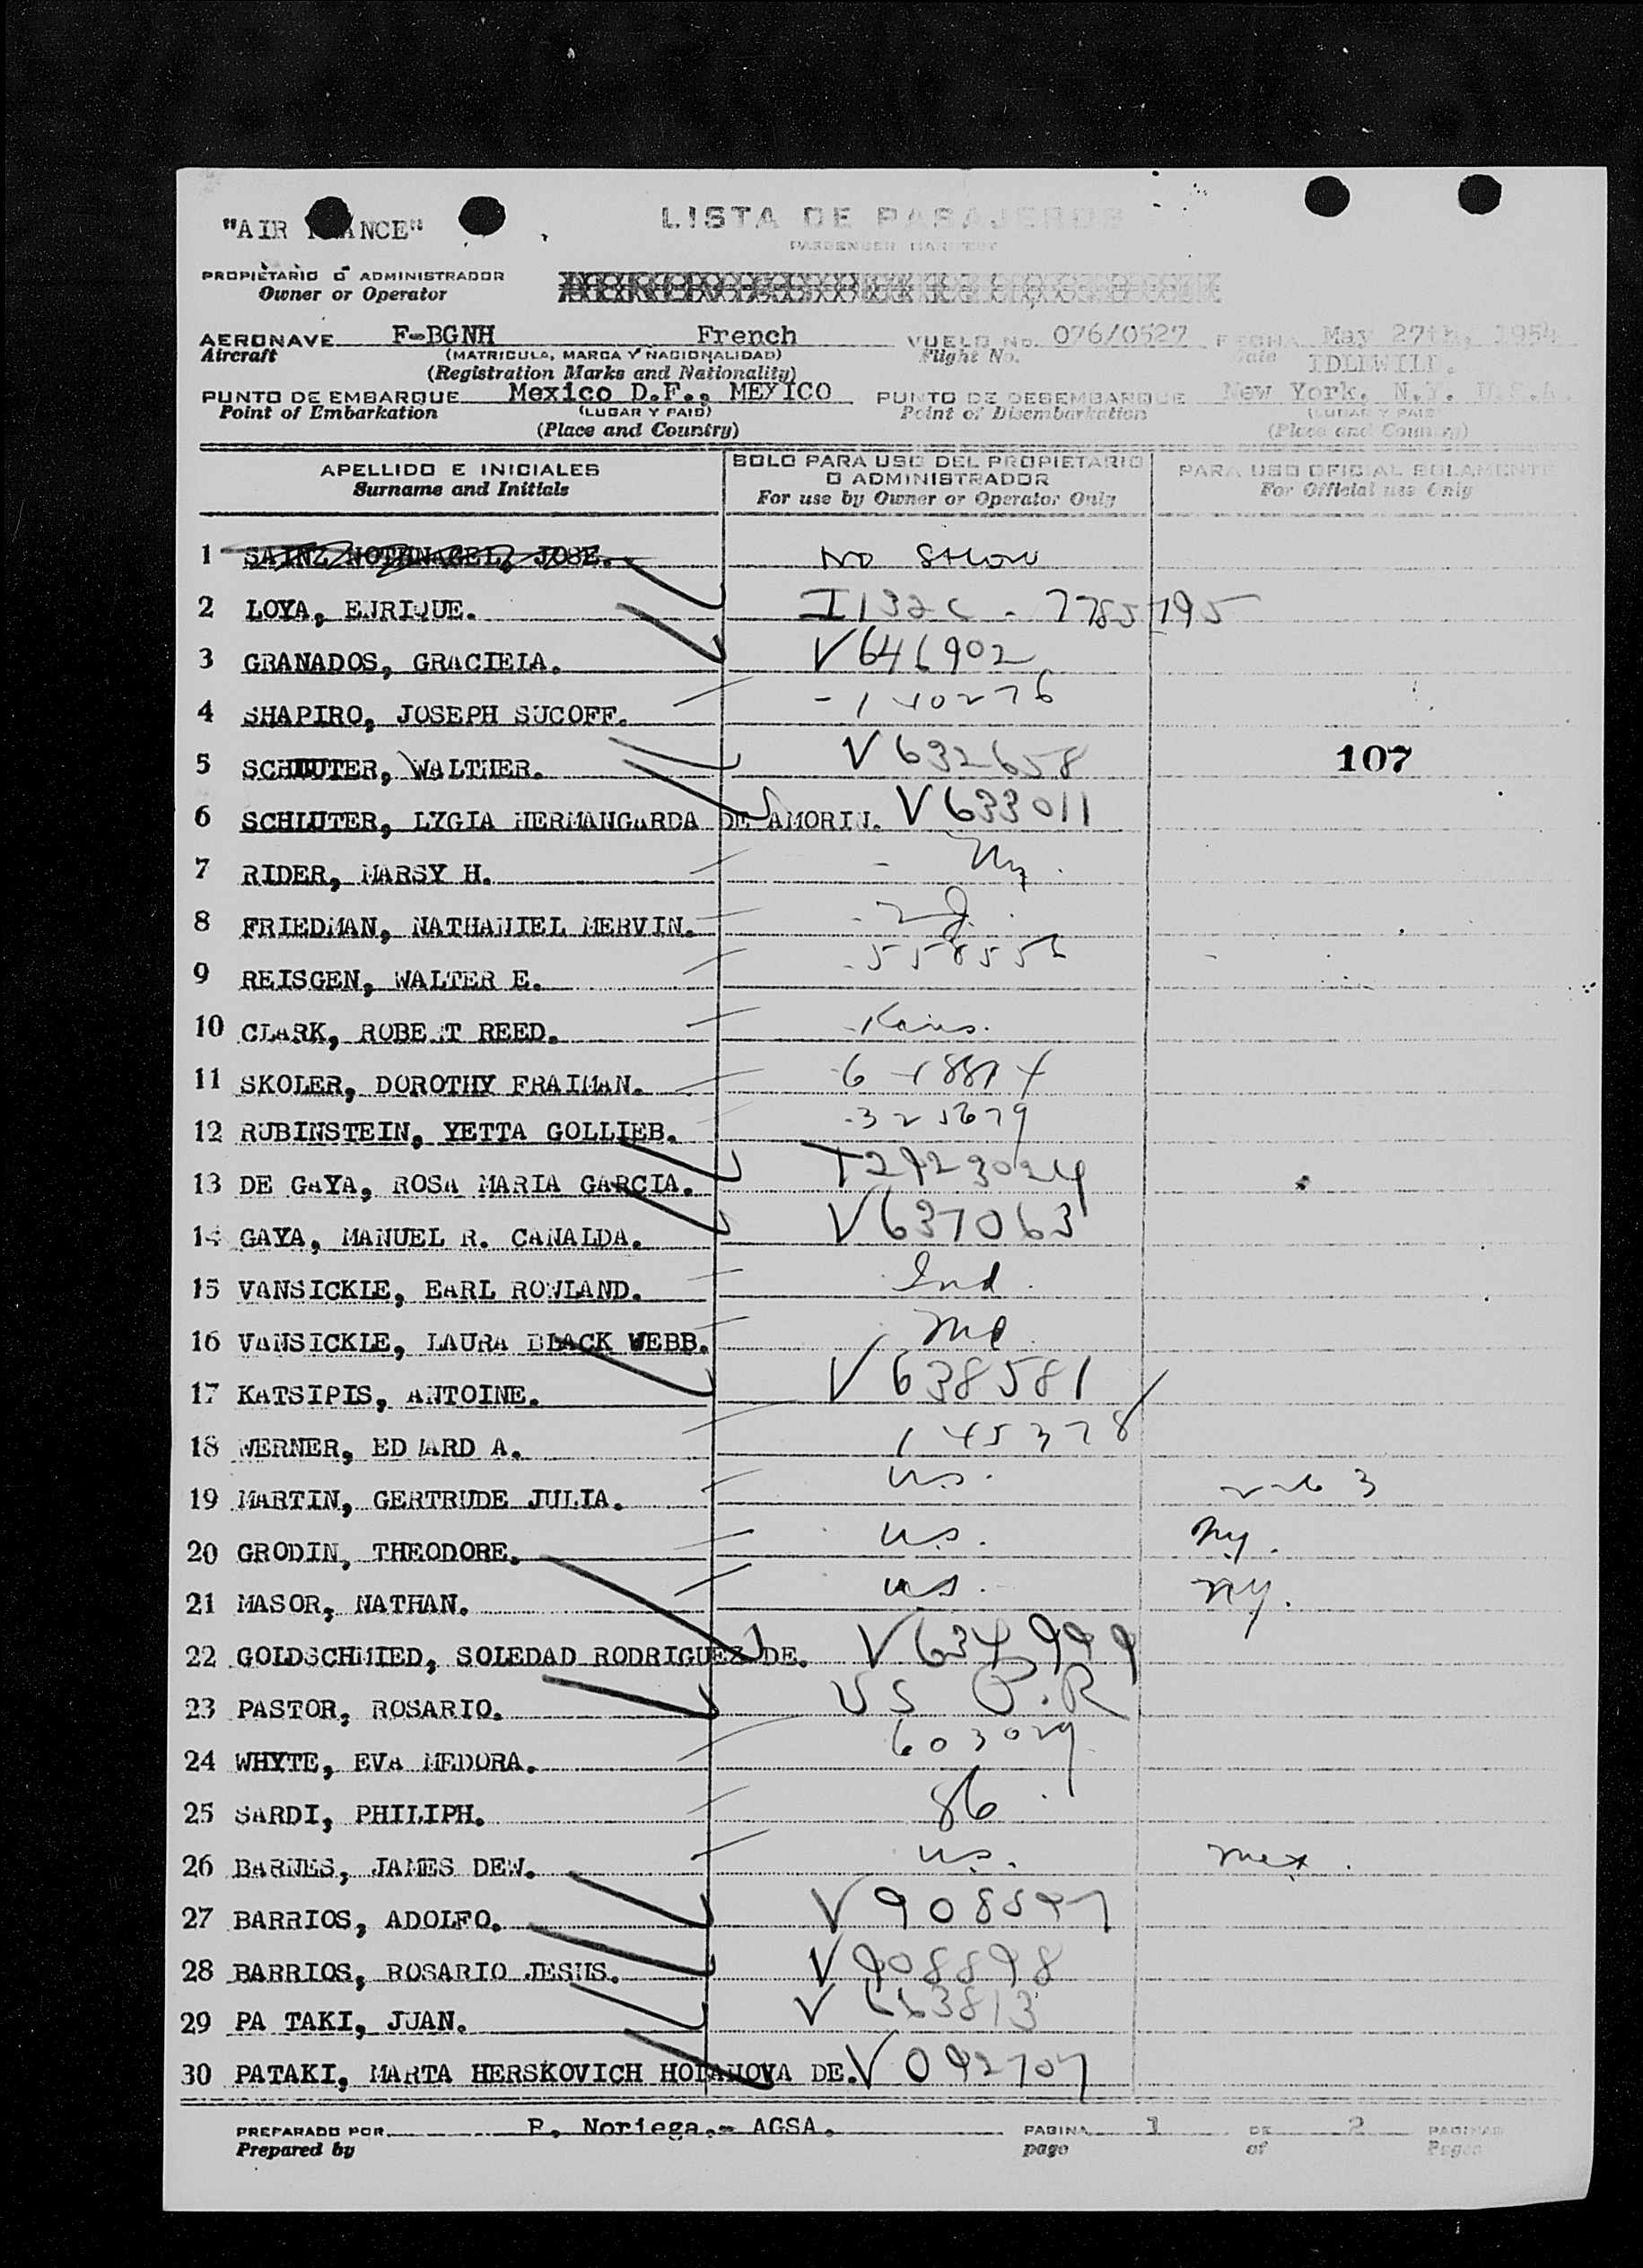 "AIR FRANCE"
LISTA DE PASAJEROS
PASSENGER MANIFEST
PROPIETARIO O ADMINISTRADOR
Owner or Operator
AERONAVE F-BGNH French VUELO No. 076/0527 FECHA May 27th, 1954
Aircraft (MATRICULA, MARCA Y NACIONALIDAD) Flight No. Date IDLEWILD.
(Registration Marks and Nationality)
PUNTO DE EMBARQUE Mexico D.F., MEXICO PUNTO DE DESEMBARQUE New York, N.Y. U.S.A.
Point of Embarkation (LUGAR Y PAIS) Point of Disembarkation (LUGAR Y PAIS
(Place and Country) (Place and Country)
APELLIDO E INICIALES SOLO PARA USO DEL PROPIETARIO PARA USO OFICIAL SOLAMENTE
O ADMINISTRADOR
Surname and Initials For use by Owner or Operator Only For Official use Only
1 SAINZ NOTHNAGEL, JOSE. NO SHOW
2 LOYA, ENRIQUE. I132C - 7785795
3 GRANADOS, GRACIELA. V646902
4 SHAPIRO, JOSEPH SUCOFF. - 140276
5 SCHLUTER, WALTHER. V632658 107
6 SCHLUTER, LYGIA HERMANGARDA DE AMORIN. V633011
7 RIDER, MARSY H. - Ny.
8 FRIEDMAN, NATHANIEL MERVIN. - NJ.
9 REISGEN, WALTER E.
10 CLARK, ROBERT REED. - Kans.
11 SKOLER, DOROTHY FRAIMAN.
12 RUBINSTEIN, YETTA GOLLIEB. -325679
13 DE GAYA, ROSA MARIA GARCIA. T2723024
14 GAYA, MANUEL R. CANALDA. V637063
15 VANSICKLE, EARL ROWLAND. Ind.
16 VANSICKLE, LAURA BLACK WEBB. Mo.
17 KATSIPIS, ANTOINE. V638581
18 WERNER, EDWARD A. 145378
19 MARTIN, GERTRUDE JULIA. US.
20 GRODIN, THEODORE. US. Ny.
21 MASOR, NATHAN. US. Ny.
22 GOLDSCHMIED, SOLEDAD RODRIGUEZ DE. V634999
23 PASTOR, ROSARIO. US P.R
24 WHYTE, EVA MEDORA. 603029
25 SARDI, PHILIPH. 86
26 BARNES, JAMES DEW. US. Mex.
27 BARRIOS, ADOLFO. V908897
28 BARRIOS, ROSARIO JESUS. V908898
29 PA TAKI, JUAN. V663813
30 PATAKI, MARTA HERSKOVICH HOLANOVA DE. V092707
PREPARADO POR P. Noriega.- AGSA. PAGINA 1 DE 2 PAGINAS
Prepared by page of Pages